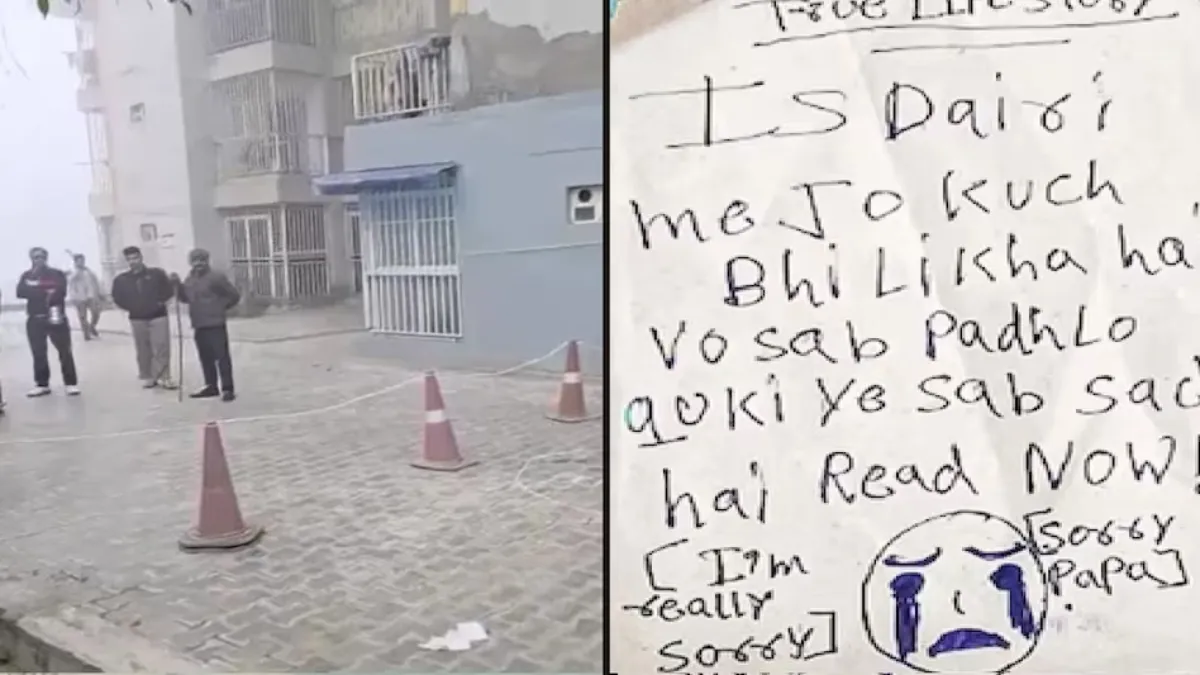 True Life Story
Is Dairi
me Jo Kuch
Bhi Likha ha
Vo sab Padh Lo
quki Ye sab sac
hai Read NOW!
[I'm
really
sorry]
[sorry
Papa]